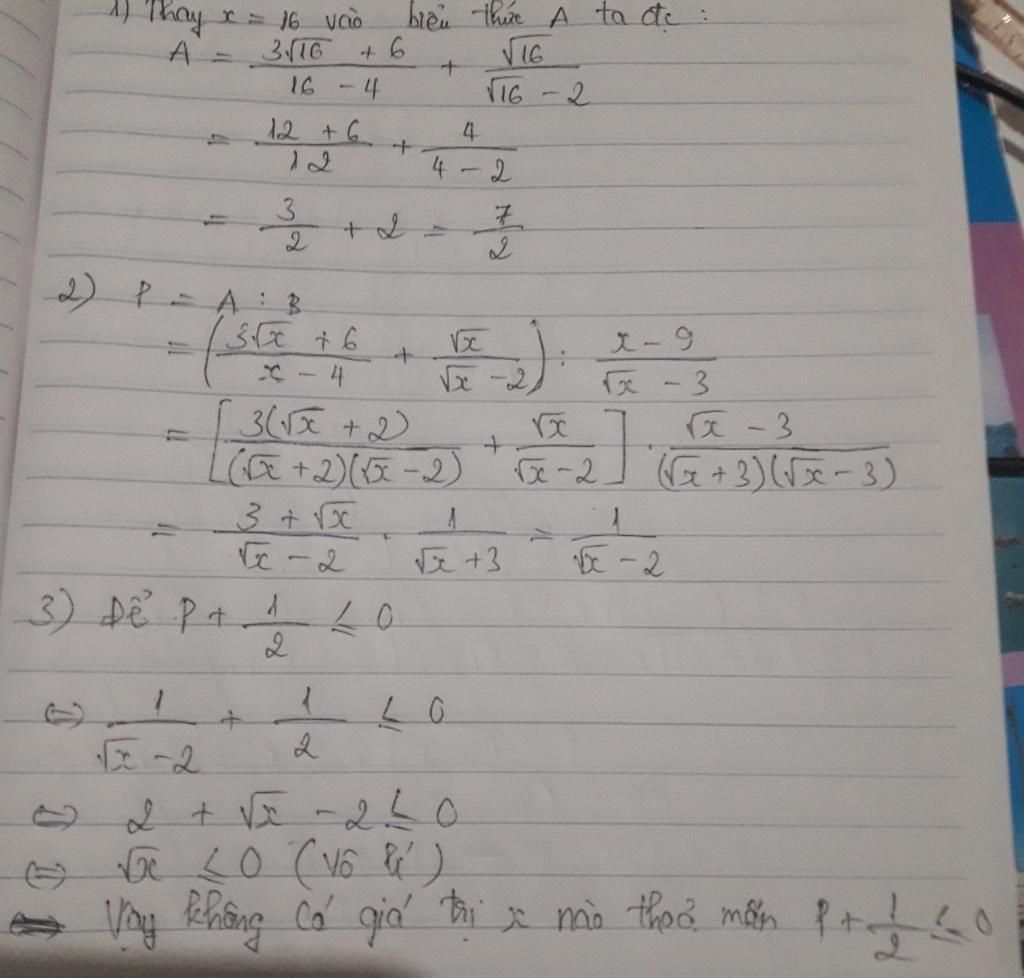 1) Thay x = 16 vào biểu thức A ta đc :
A = (3√16 + 6)/(16 - 4) + √16/(√16 - 2)
= (12 + 6)/12 + 4/(4 - 2)
= 3/2 + 2 = 7/2
2) P = A : B
= ((3√x + 6)/(x - 4) + √x/(√x - 2)) : (x - 9)/(√x - 3)
= [3(√x + 2)/((√x + 2)(√x - 2)) + √x/(√x - 2)] . (√x - 3)/((√x + 3)(√x - 3))
= (3 + √x)/(√x - 2) . 1/(√x + 3) = 1/(√x - 2)
3) Để P + 1/2 ≤ 0
⇔ 1/(√x - 2) + 1/2 ≤ 0
⇔ 2 + √x - 2 ≤ 0
⇔ √x ≤ 0 (Vô lí)
Vậy không có giá trị x nào thoả mãn P + 1/2 ≤ 0